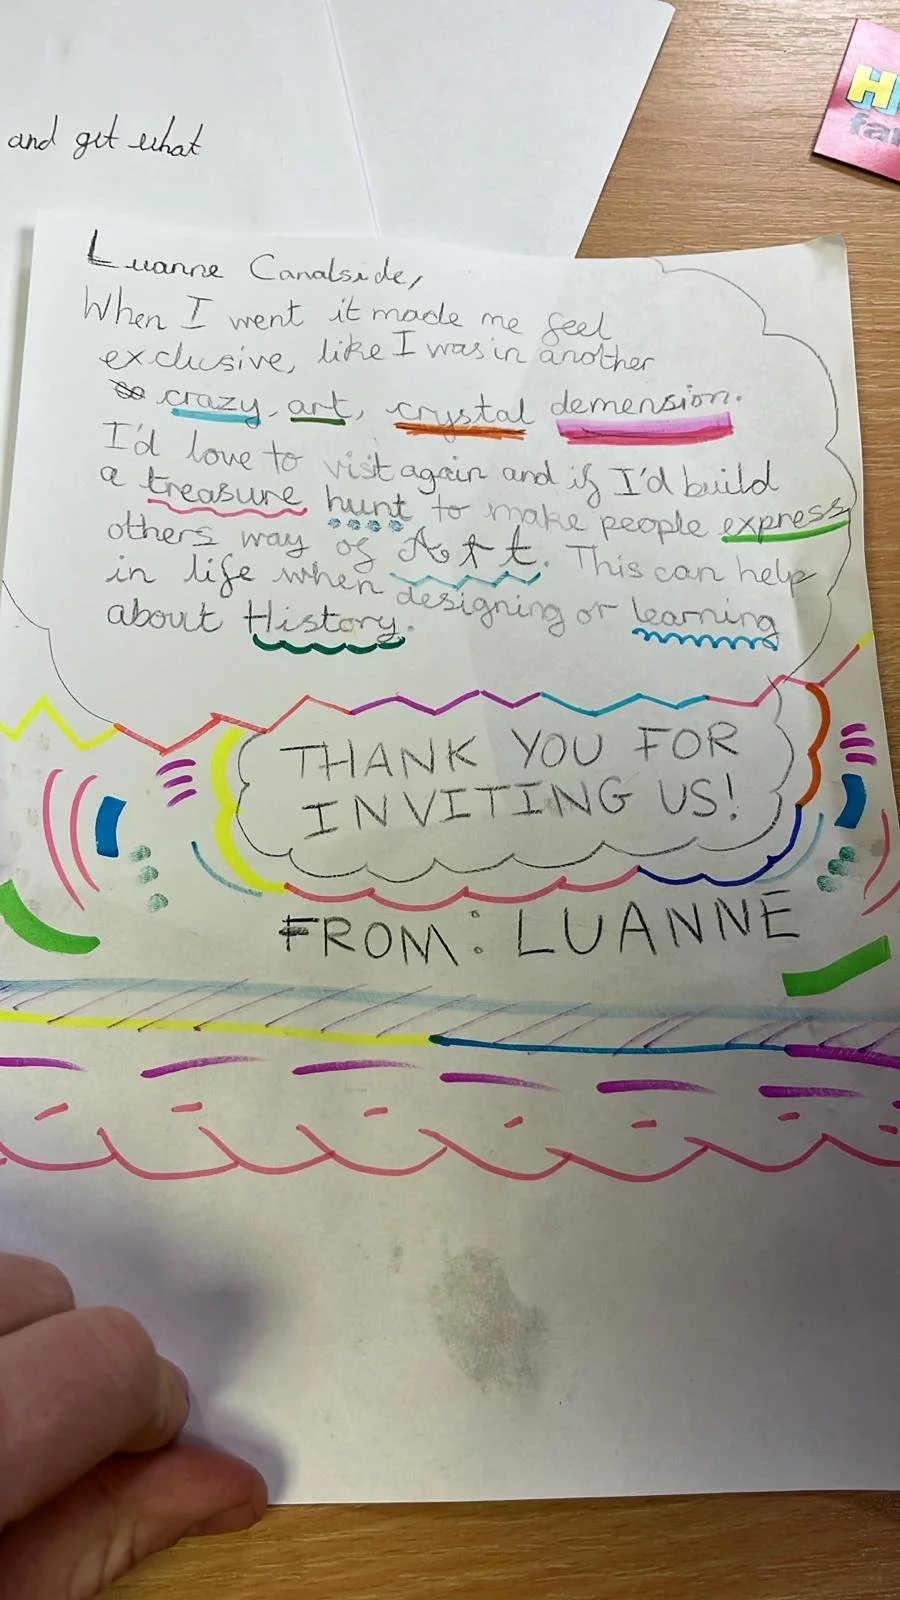 and get what
Luanne Canalside,
When I went it made me feel
exclusive, like I was in another
crazy, art, crystal demension.
I'd love to visit again and if I'd build
a treasure hunt to make people express
others way of Art. This can help
in life when designing or learning
about History.
THANK YOU FOR
INVITING US!
FROM: LUANNE